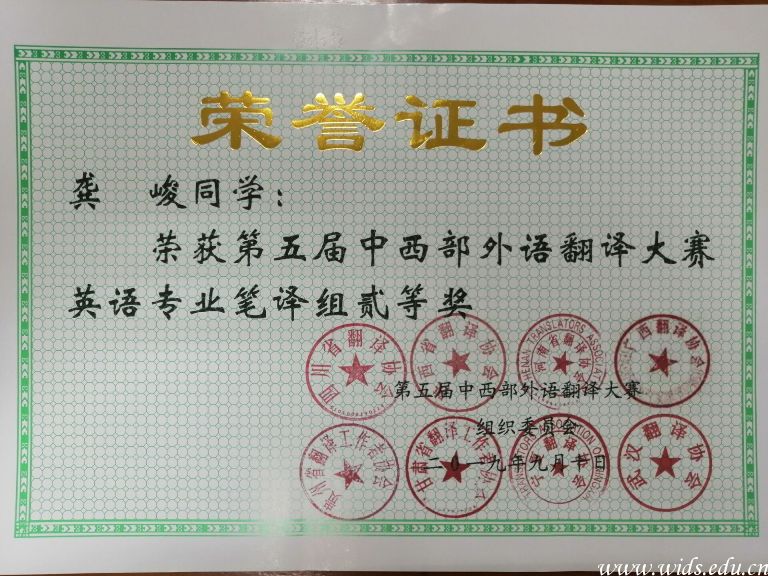 荣誉证书
龚 峻同学：
荣获第五届中西部外语翻译大赛
英语专业笔译组贰等奖
四川省翻译协会
西省翻译协会
HENAN TRANSLATORS ASSOCIATION
河南省翻译协会
广西翻译协会
第五届中西部外语翻译大赛
组织委员会
二〇一九年九月十日
贵州省翻译工作者协会
甘肃省翻译工作者协会
武汉翻译协会
www.wids.edu.cn